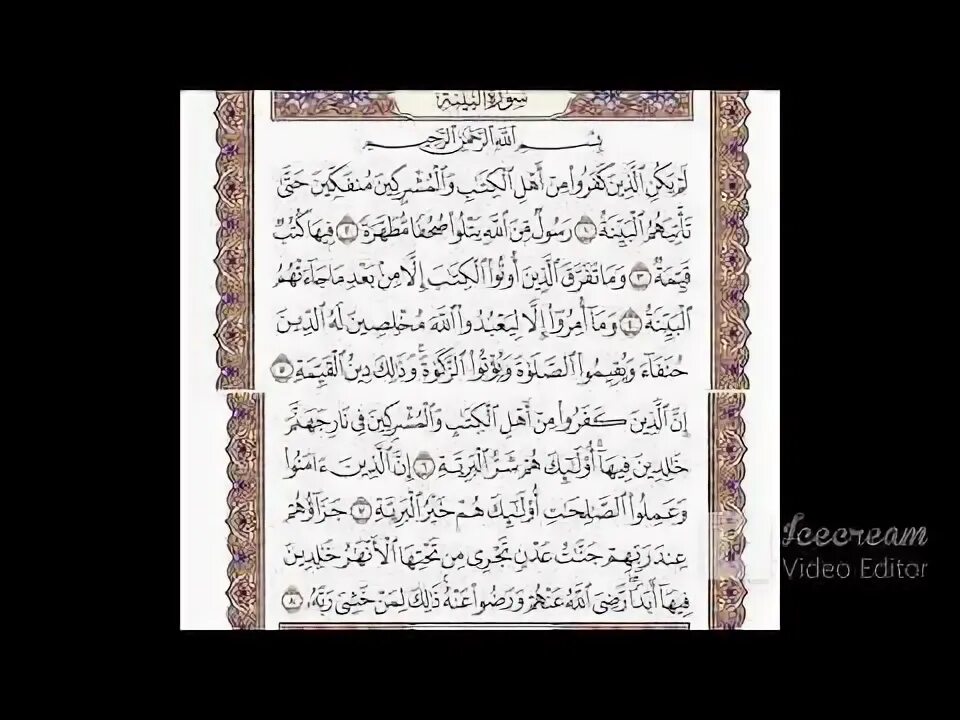 سورة البينة
بسم الله الرحمن الرحيم
لَمْ يَكُنِ الَّذِينَ كَفَرُوا مِنْ أَهْلِ الْكِتَابِ وَالْمُشْرِكِينَ مُنفَكِّينَ حَتَّىٰ
تَأْتِيَهُمُ الْبَيِّنَةُ ١ رَسُولٌ مِّنَ اللَّهِ يَتْلُوا صُحُفًا مُّطَهَّرَةً ٢ فِيهَا كُتُبٌ
قَيِّمَةٌ ٣ وَمَا تَفَرَّقَ الَّذِينَ أُوتُوا الْكِتَابَ إِلَّا مِنْ بَعْدِ مَا جَاءَتْهُمُ
الْبَيِّنَةُ ٤ وَمَا أُمِرُوا إِلَّا لِيَعْبُدُوا اللَّهَ مُخْلِصِينَ لَهُ الدِّينَ
حُنَفَاءَ وَيُقِيمُوا الصَّلَوٰةَ وَيُؤْتُوا الزَّكَوٰةَ وَذَٰلِكَ دِينُ الْقَيِّمَةِ ٥
إِنَّ الَّذِينَ كَفَرُوا مِنْ أَهْلِ الْكِتَابِ وَالْمُشْرِكِينَ فِي نَارِ جَهَنَّمَ
خَالِدِينَ فِيهَا أُولَٰئِكَ هُمْ شَرُّ الْبَرِيَّةِ ٦ إِنَّ الَّذِينَ ءَامَنُوا
وَعَمِلُوا الصَّالِحَاتِ أُولَٰئِكَ هُمْ خَيْرُ الْبَرِيَّةِ ٧ جَزَاؤُهُمْ
عِندَ رَبِّهِمْ جَنَّٰتُ عَدْنٍ تَجْرِي مِن تَحْتِهَا الْأَنْهَٰرُ خَٰلِدِينَ
فِيهَا أَبَدًا رَّضِيَ اللَّهُ عَنْهُمْ وَرَضُوا عَنْهُ ذَٰلِكَ لِمَنْ خَشِيَ رَبَّهُ ٨
Icecream
Video Editor